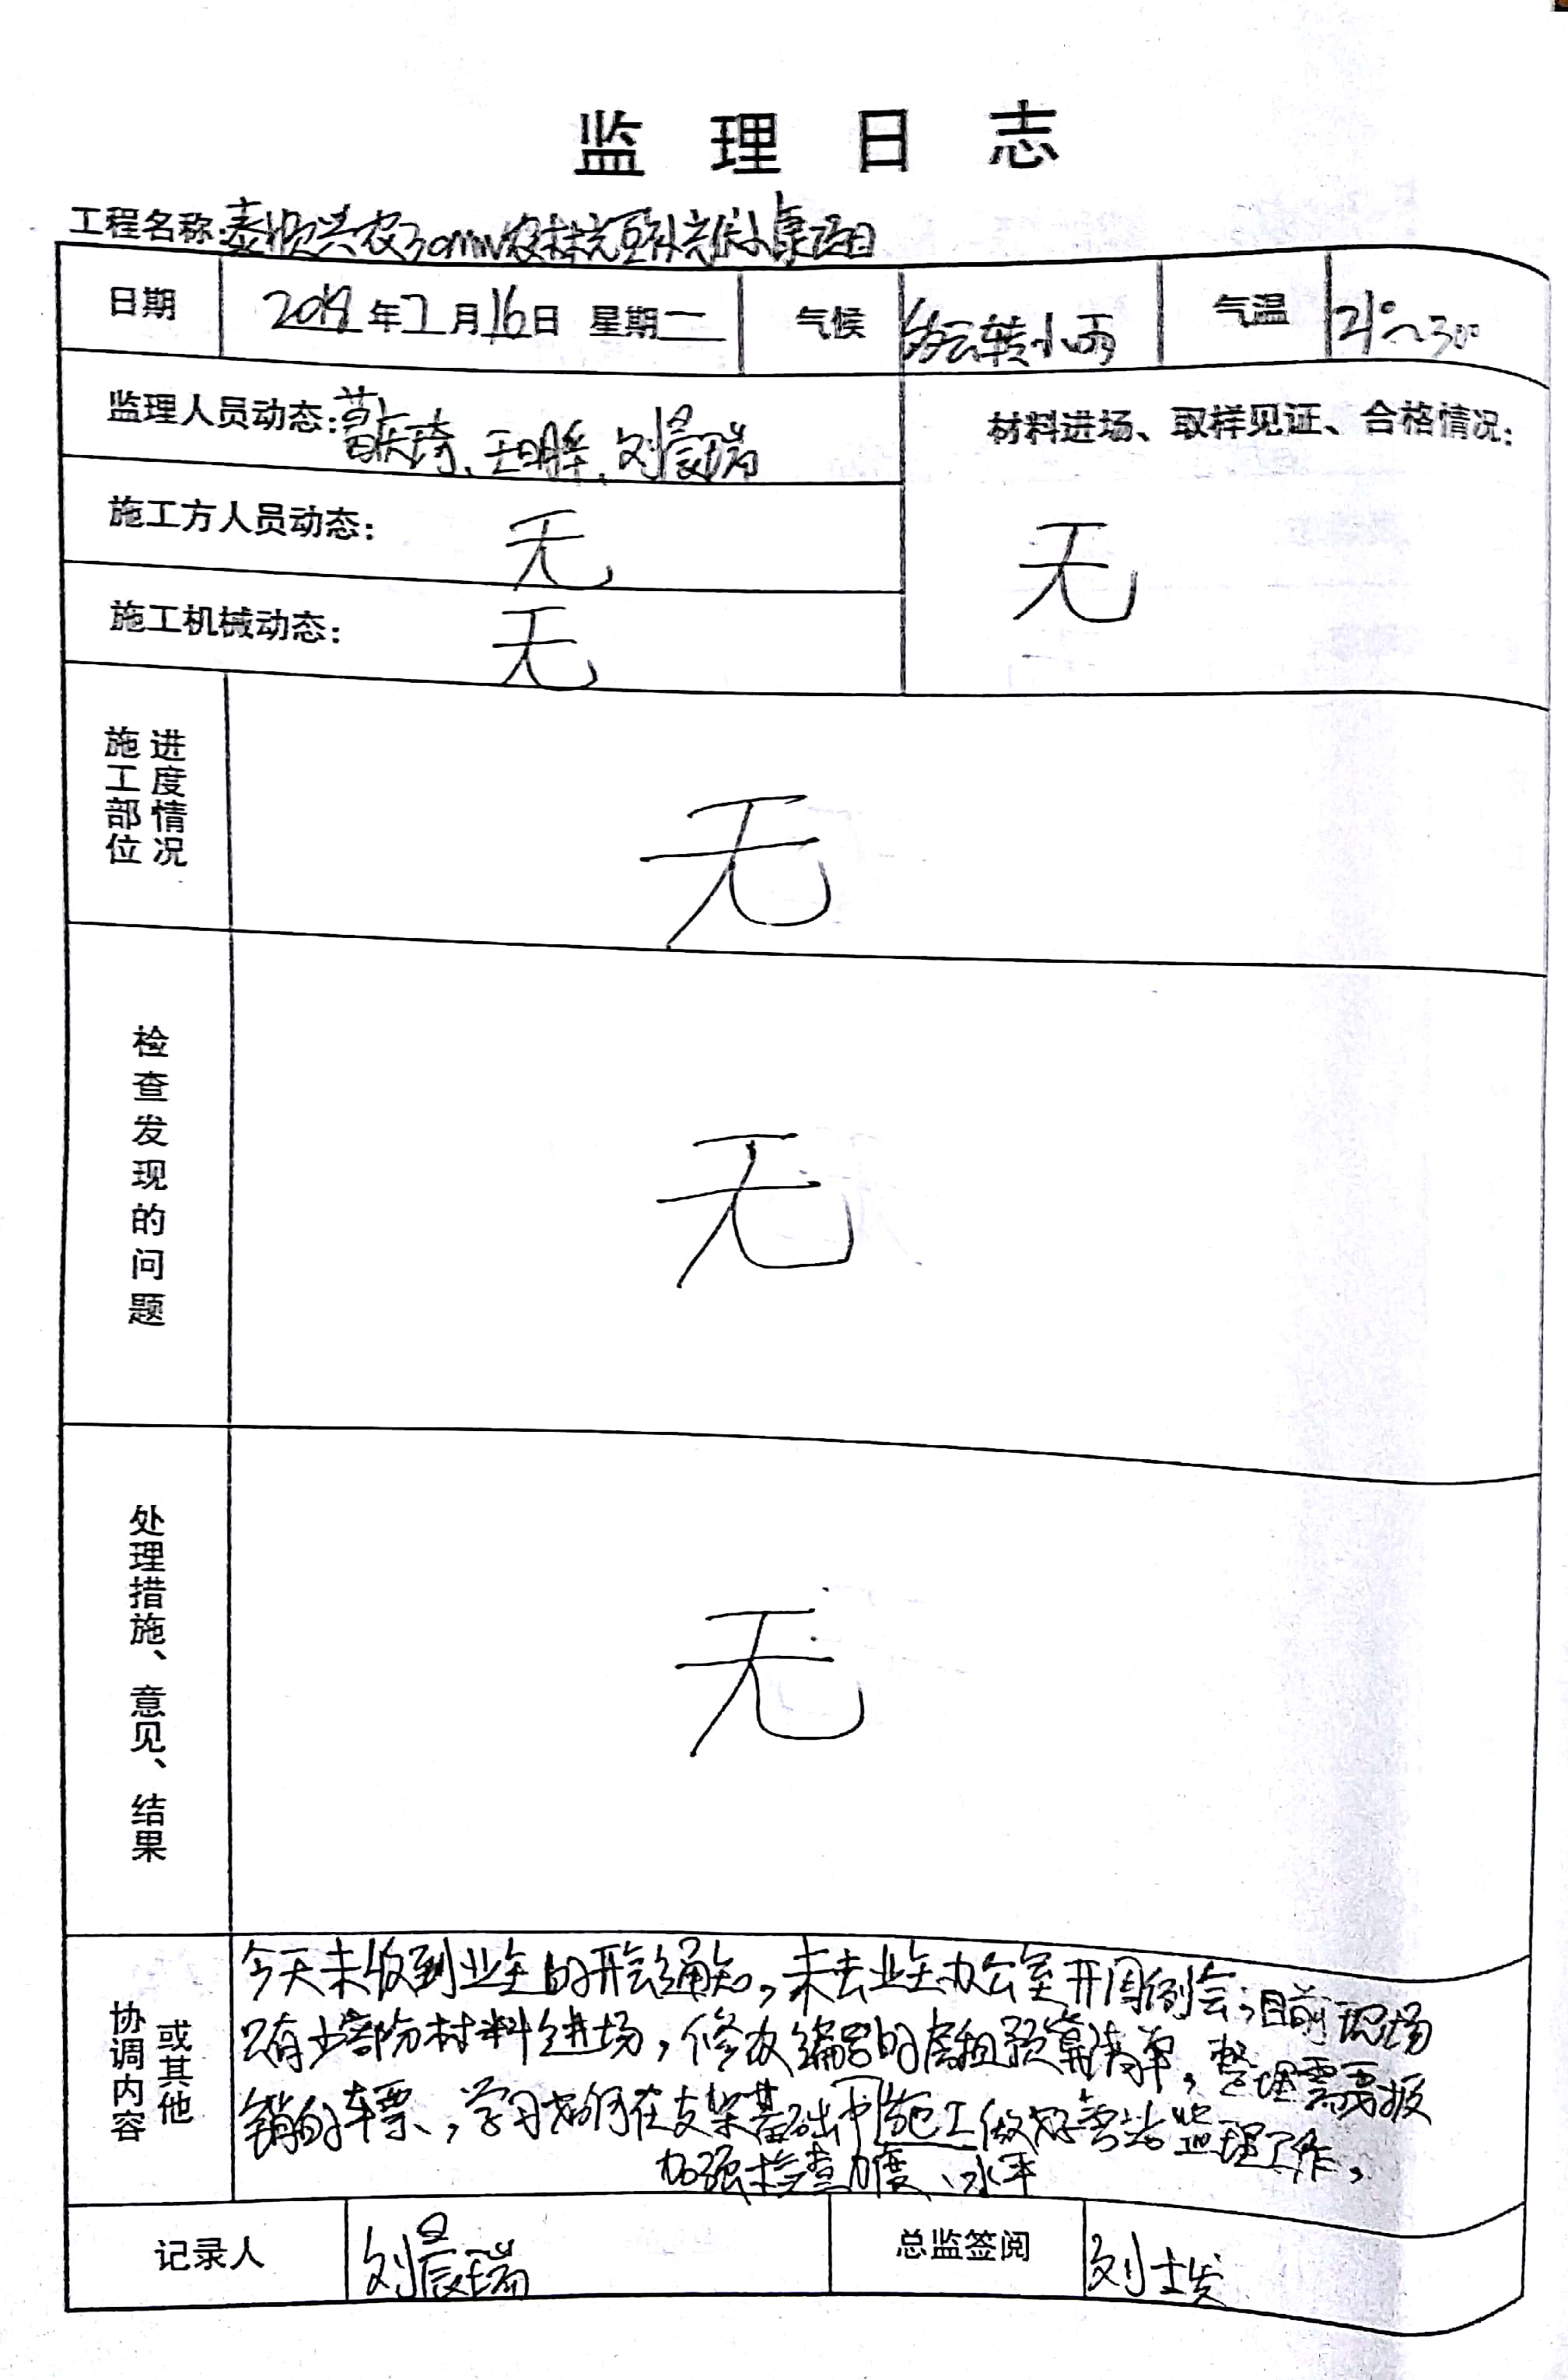 监理日志
工程名称:泰顺兴农30MW农林光互补光伏小康项目
日期 2019年7月16日 星期二 气候 多云转小雨 气温 21°~30°
监理人员动态: 王明辉、刘晨瑞
材料进场、取样见证、合格情况:
无
施工方人员动态: 无
施工机械动态: 无
施工部位 进度情况
无
检查发现的问题
无
处理措施、意见、结果
无
协调内容 或其他
今天未收到业主的开会通知,未去业主办公室开周例会,目前现场
只有少部份材料进场,修改编写的房租预算清单,整理需要报
销的车票、,学习如何在支架基础中施工做好旁站监理工作,
加强检查力度、水平
记录人 刘晨瑞 总监签阅 刘士发